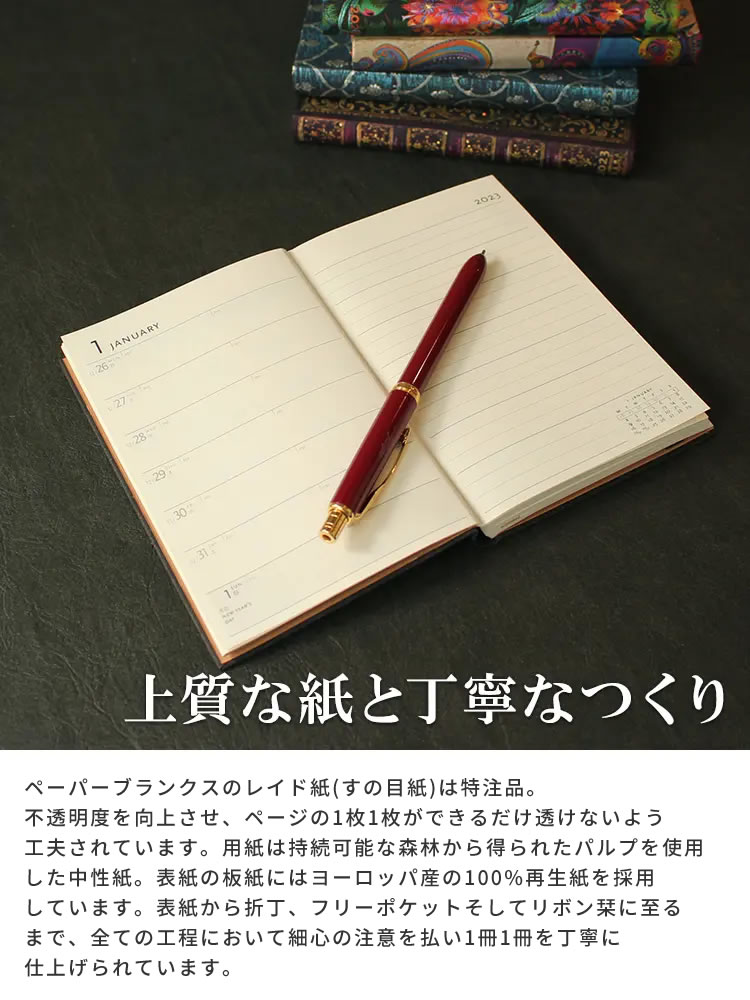 2023
1 JANUARY
26
27
28
29
30
31
1 SUN
NEW YEAR'S
DAY
JANUARY
2023
2023
上質な紙と丁寧なつくり
ペーパーブランクスのレイド紙(すの目紙)は特注品。
不透明度を向上させ、ページの1枚1枚ができるだけ透けないよう
工夫されています。用紙は持続可能な森林から得られたパルプを使用
した中性紙。表紙の板紙にはヨーロッパ産の100%再生紙を採用
しています。表紙から折丁、フリーポケットそしてリボン栞に至る
まで、全ての工程において細心の注意を払い1冊1冊を丁寧に
仕上げられています。